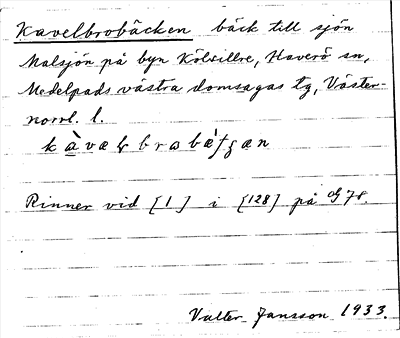 Kavelbrobäcken bäck till sjön
Malsjön på byn Kölsillre, Haverö sn,
Medelpads västra domsagas tg, Väster-
norrl. l.
Rinner vid [1] i [128] på G 78.
Valter Jansson 1933.